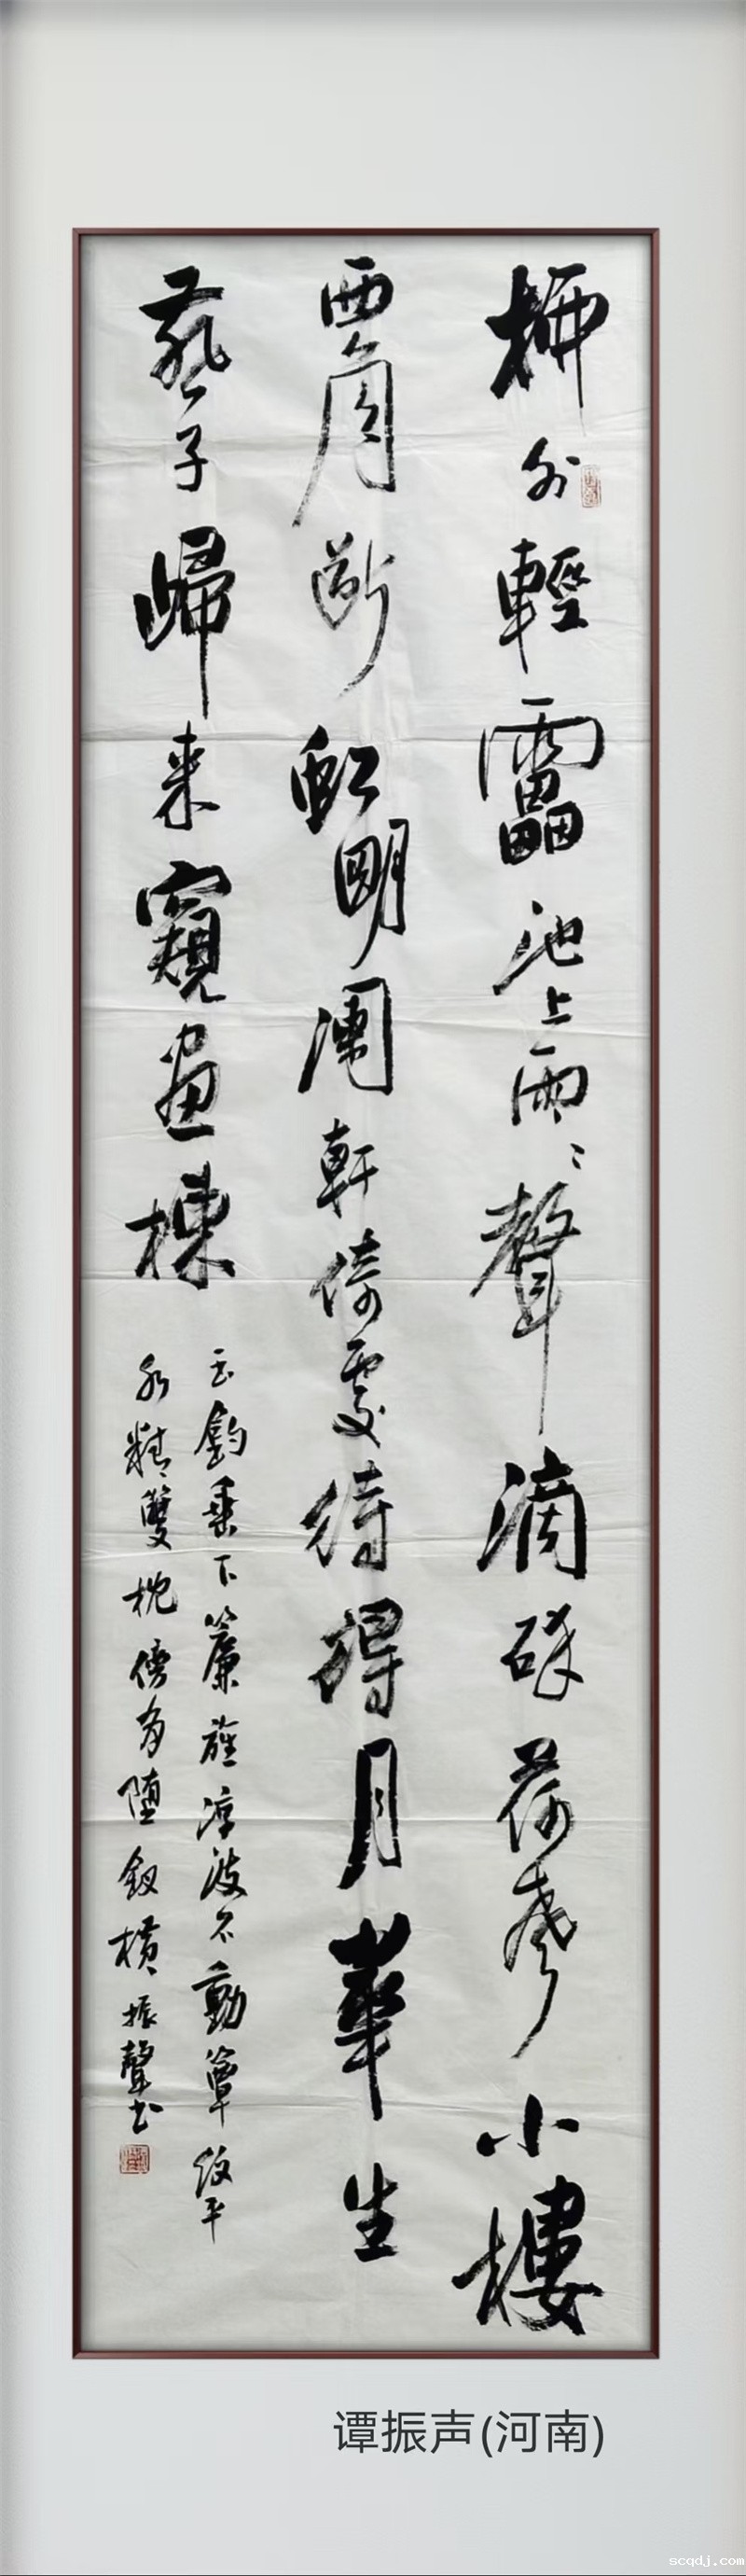 柳外輕雷池上雨〻聲滴砕荷聲小樓
西角断虹明闌軒倚處待得月華生
燕子歸来窺畫棟
玉鈎垂下簾旌凉波不動簟紋平
水精雙枕傍有堕釵橫振聲书
谭振声(河南)
scqdj.com